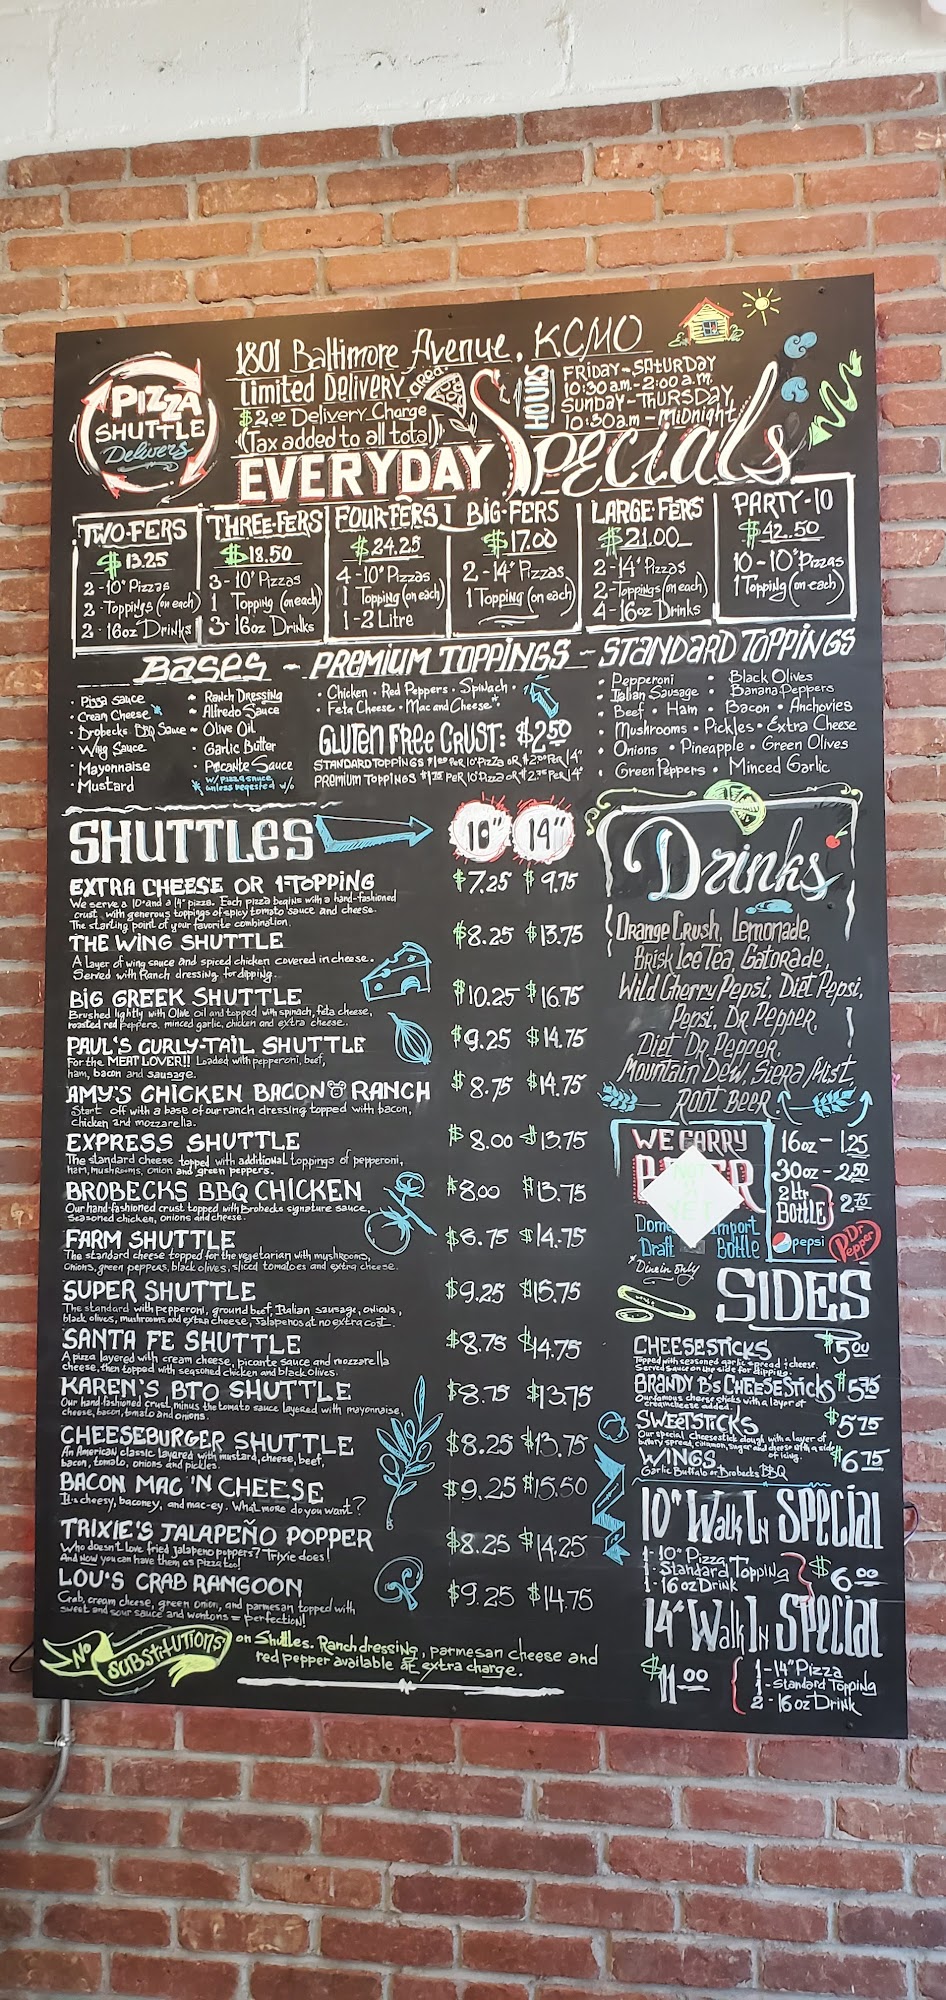 PIZZA
SHUTTLE
Delivers
1801 Baltimore Avenue, KCMO
Limited Delivery area.
$2.00 Delivery Charge
(Tax added to all total)
HOURS
FRIDAY-SATURDAY
10:30 a.m-2:00 a.m.
SUNDAY-THURSDAY
10:30am-Midnight
EVERYDAY Specials
TWO-FERS
$13.25
2-10" Pizzas
2-Toppings (on each)
2-16oz Drinks
THREE-FERS
$18.50
3-10" Pizzas
1 Topping (on each)
3-16oz Drinks
FOUR-FERS
$24.25
4-10" Pizzas
1 Topping (on each)
1-2 Litre
BIG-FERS
$17.00
2-14" Pizzas
1 Topping (on each)
LARGE-FERS
$21.00
2-14" Pizzas
2-Toppings (on each)
4-16oz Drinks
PARTY-10
$42.50
10-10" Pizzas
1 Topping (on each)
BASES - PREMIUM TOPPINGS - STANDARD TOPPINGS
• Pizza Sauce
• Cream Cheese *
• Brobecks BBQ Sauce
• Wing Sauce
• Mayonnaise
• Mustard
~ Ranch Dressing
~ Alfredo Sauce
~ Olive Oil
• Garlic Butter
• Picante Sauce
* w/ Pizza Sauce
unless reqested w/o
• Chicken • Red Peppers • Spinach •
• Feta Cheese • Mac and Cheese*
GLUTEN FREE CRUST: $2.50
STANDARD TOPPINGS $1.00 PER 10" PIZZA OR $2.00 PER 14"
PREMIUM TOPPINGS $1.75 PER 10" PIZZA OR $2.75 PER 14"
• Pepperoni • Black Olives
• Italian Sausage • Banana Peppers
• Beef • Ham • Bacon • Anchovies
Mushrooms • Pickles • Extra Cheese
• Onions • Pineapple • Green Olives
• Green Peppers • Minced Garlic
SHUTTLES 10" 14"
EXTRA CHEESE OR 1-TOPPING $7.25 $9.75
We serve a 10" and a 14" pizza. Each pizza begins with a hand-fashioned
crust with generous toppings of spicy tomato sauce and cheese.
The starting point of your favorite combination.
THE WING SHUTTLE $8.25 $13.75
A layer of wing sauce and spiced chicken covered in cheese.
Served with Ranch dressing for dipping.
BIG GREEK SHUTTLE $10.25 $16.75
Brushed lightly with Olive oil and topped with spinach, feta cheese,
roasted red peppers, minced garlic, chicken and extra cheese.
PAUL'S CURLY-TAIL SHUTTLE $9.25 $14.75
For the MEAT LOVER!! Loaded with pepperoni, beef,
ham, bacon and sausage.
AMY'S CHICKEN BACON RANCH $8.75 $14.75
Start off with a base of our ranch dressing topped with bacon,
chicken and mozzarella.
EXPRESS SHUTTLE $8.00 $13.75
The standard cheese topped with additional toppings of pepperoni,
ham, mushrooms, onion and green peppers.
BROBECKS BBQ CHICKEN $8.00 $13.75
Our hand-fashioned crust topped with Brobecks signature sauce,
seasoned chicken, onions and cheese.
FARM SHUTTLE $8.75 $14.75
The standard cheese topped for the vegetarian with mushrooms,
onions, green peppers, black olives, sliced tomatoes and extra cheese.
SUPER SHUTTLE $9.25 $15.75
The standard with pepperoni, ground beef, Italian sausage, onions,
black olives, mushrooms and extra cheese, Jalapenos at no extra cost.
SANTA FE SHUTTLE $8.75 $14.75
A pizza layered with cream cheese, picante sauce and mozzarella
cheese, then topped with seasoned chicken and black olives.
KAREN'S BTO SHUTTLE $8.75 $13.75
Our hand-fashioned crust minus the tomato sauce layered with mayonnaise,
cheese, bacon, tomato and onions.
CHEESEBURGER SHUTTLE $8.25 $13.75
An American classic layered with mustard, cheese, beef,
bacon, tomato, onions and pickles.
BACON MAC 'N CHEESE $9.25 $15.50
It's cheesy, baconey, and mac-ey. What more do you want?
TRIXIE'S JALAPEÑO POPPER $8.25 $14.25
Who doesn't love fried jalapeno peppers? Trixie does!
And now you can have them as Pizza too!
LOU'S CRAB RANGOON $9.25 $14.75
Crab, cream cheese, green onion, and parmesan topped with
sweet and sour sauce and wontons = perfection!
No SUBSTITUTIONS
on Shuttles. Ranch dressing, parmesan cheese and
red pepper available at extra charge.
Drinks
Orange Crush, Lemonade,
Brisk Ice Tea Gatorade,
Wild Cherry Pepsi, Diet Pepsi,
Pepsi, Dr. Pepper,
Diet Dr. Pepper,
Mountain Dew, Siera Mist
ROOT BEER.
WE CARRY
NOT
YET
Draft Bottle
*Dine in only
16oz - 1.25
30oz - 2.50
2 ltr.
BOTTLE } 2.75
pepsi
Dr Pepper
SIDES
CHEESESTICKS $5.00
Topped with seasoned garlic spread & cheese.
Served sauce on the side for dipping.
BRANDY B's CHEESESTICKS $5.75
Our famous cheese sticks with a layer of
creamcheese added.
SWEETSTICKS $5.75
Our special cheesestick dough with a layer of
buttery spread, cinnamon, sugar and cheese with a side
of icing.
WINGS $6.75
Garlic Buffalo or Brobecks BBQ
10" Walk In SPECIAL
1-10" Pizza
1-Standard Topping
1-16oz Drink
$6.00
14" Walk In SPECIAL
$11.00
1-14" Pizza
1-Standard Topping
2-16oz Drink